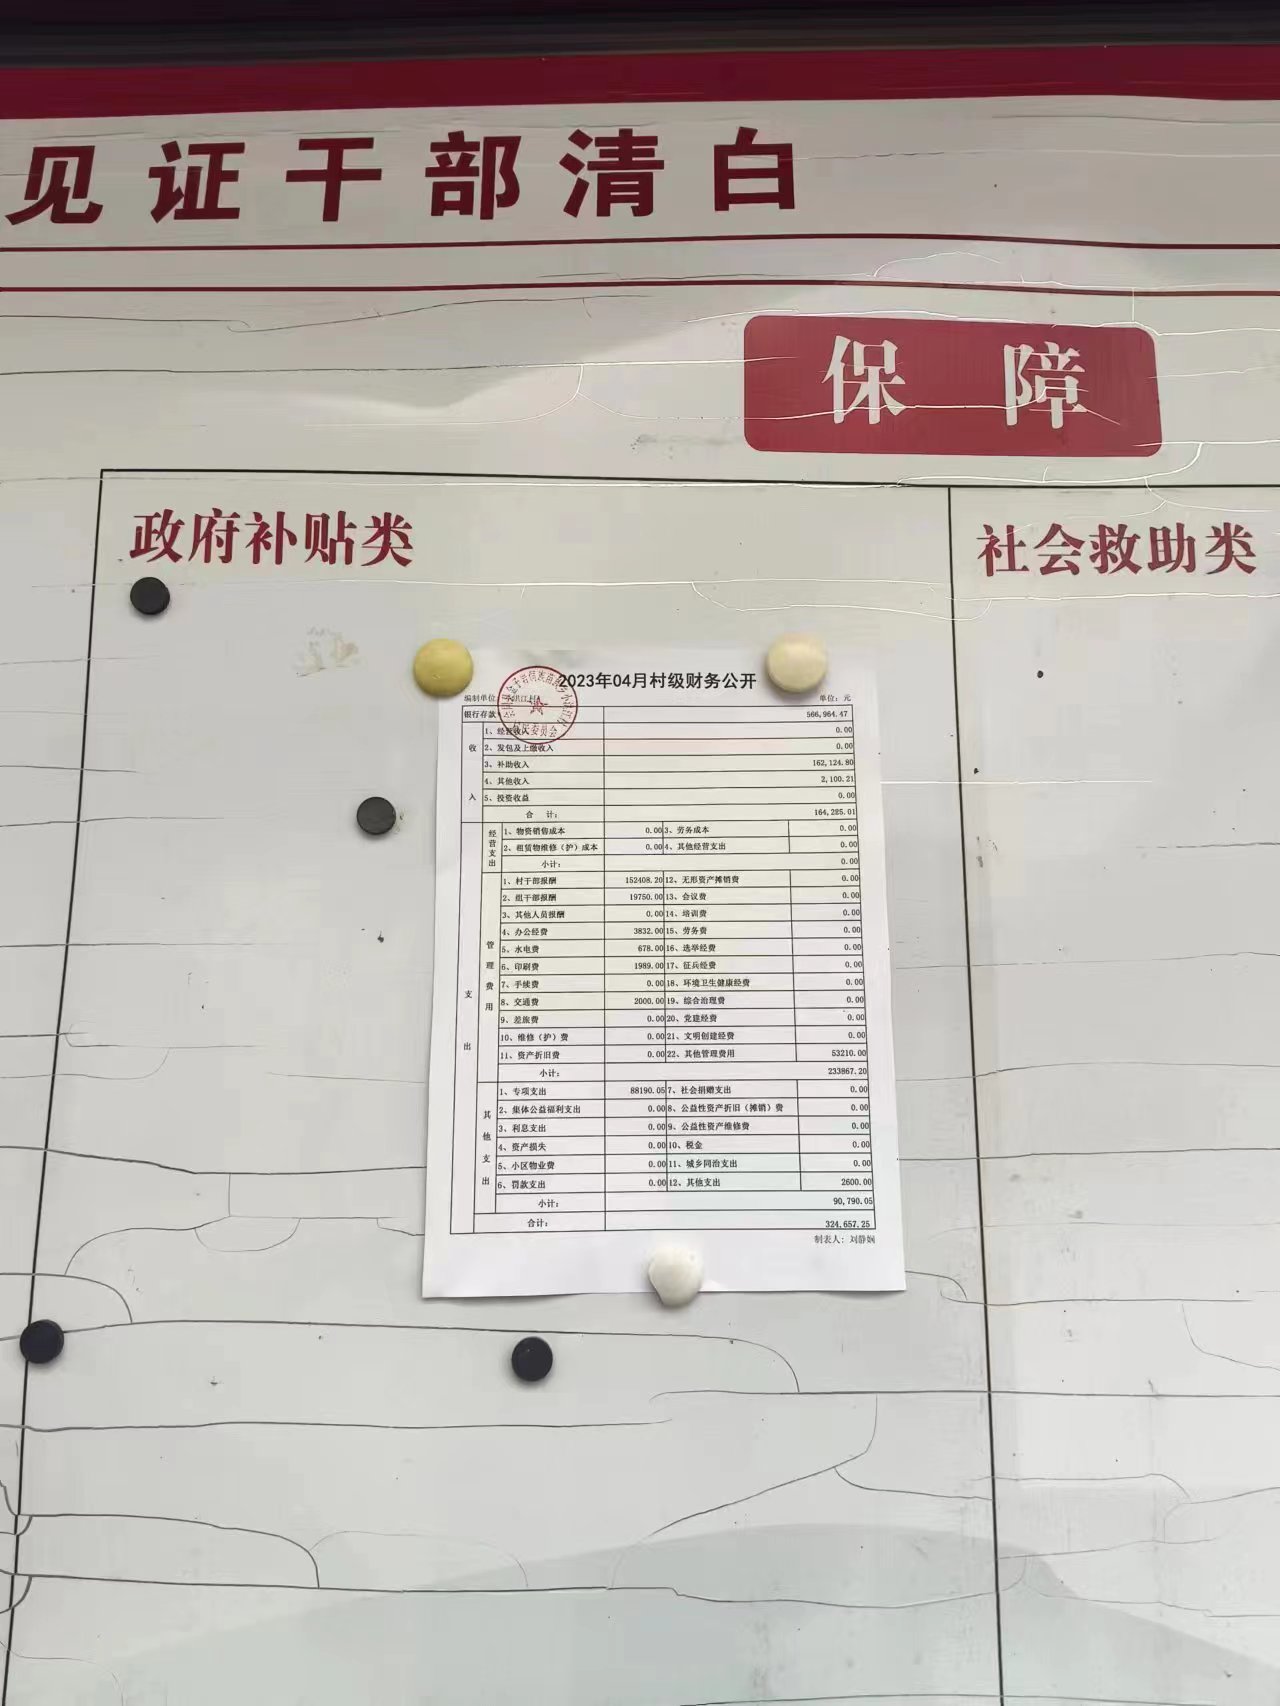 见证干部清白
保障
政府补贴类
社会救助类
2023年04月村级财务公开
编制单位: 洪江村 单位: 元
银行存款 566,964.47
收入
1、经营收入 0.00
2、发包及上缴收入 0.00
3、补助收入 162,124.80
4、其他收入 2,100.21
5、投资收益 0.00
合 计: 164,285.01
支出
经营支出
1、物资销售成本 0.00 3、劳务成本 0.00
2、租赁物维修（护）成本 0.00 4、其他经营支出 0.00
小计: 0.00
管理费用
1、村干部报酬 152408.20 12、无形资产摊销费 0.00
2、组干部报酬 19750.00 13、会议费 0.00
3、其他人员报酬 0.00 14、培训费 0.00
4、办公经费 3832.00 15、劳务费 0.00
5、水电费 678.00 16、选举经费 0.00
6、印刷费 1989.00 17、征兵经费 0.00
7、手续费 0.00 18、环境卫生健康经费 0.00
8、交通费 2000.00 19、综合治理费 0.00
9、差旅费 0.00 20、党建经费 0.00
10、维修（护）费 0.00 21、文明创建经费 0.00
11、资产折旧费 0.00 22、其他管理费用 53210.00
小计: 233867.20
其他支出
1、专项支出 88190.05 7、社会捐赠支出 0.00
2、集体公益福利支出 0.00 8、公益性资产折旧（摊销）费 0.00
3、利息支出 0.00 9、公益性资产维修费 0.00
4、资产损失 0.00 10、税金 0.00
5、小区物业费 0.00 11、城乡同治支出 0.00
6、罚款支出 0.00 12、其他支出 2600.00
小计: 90,790.05
合计: 324,657.25
制表人: 刘静娴